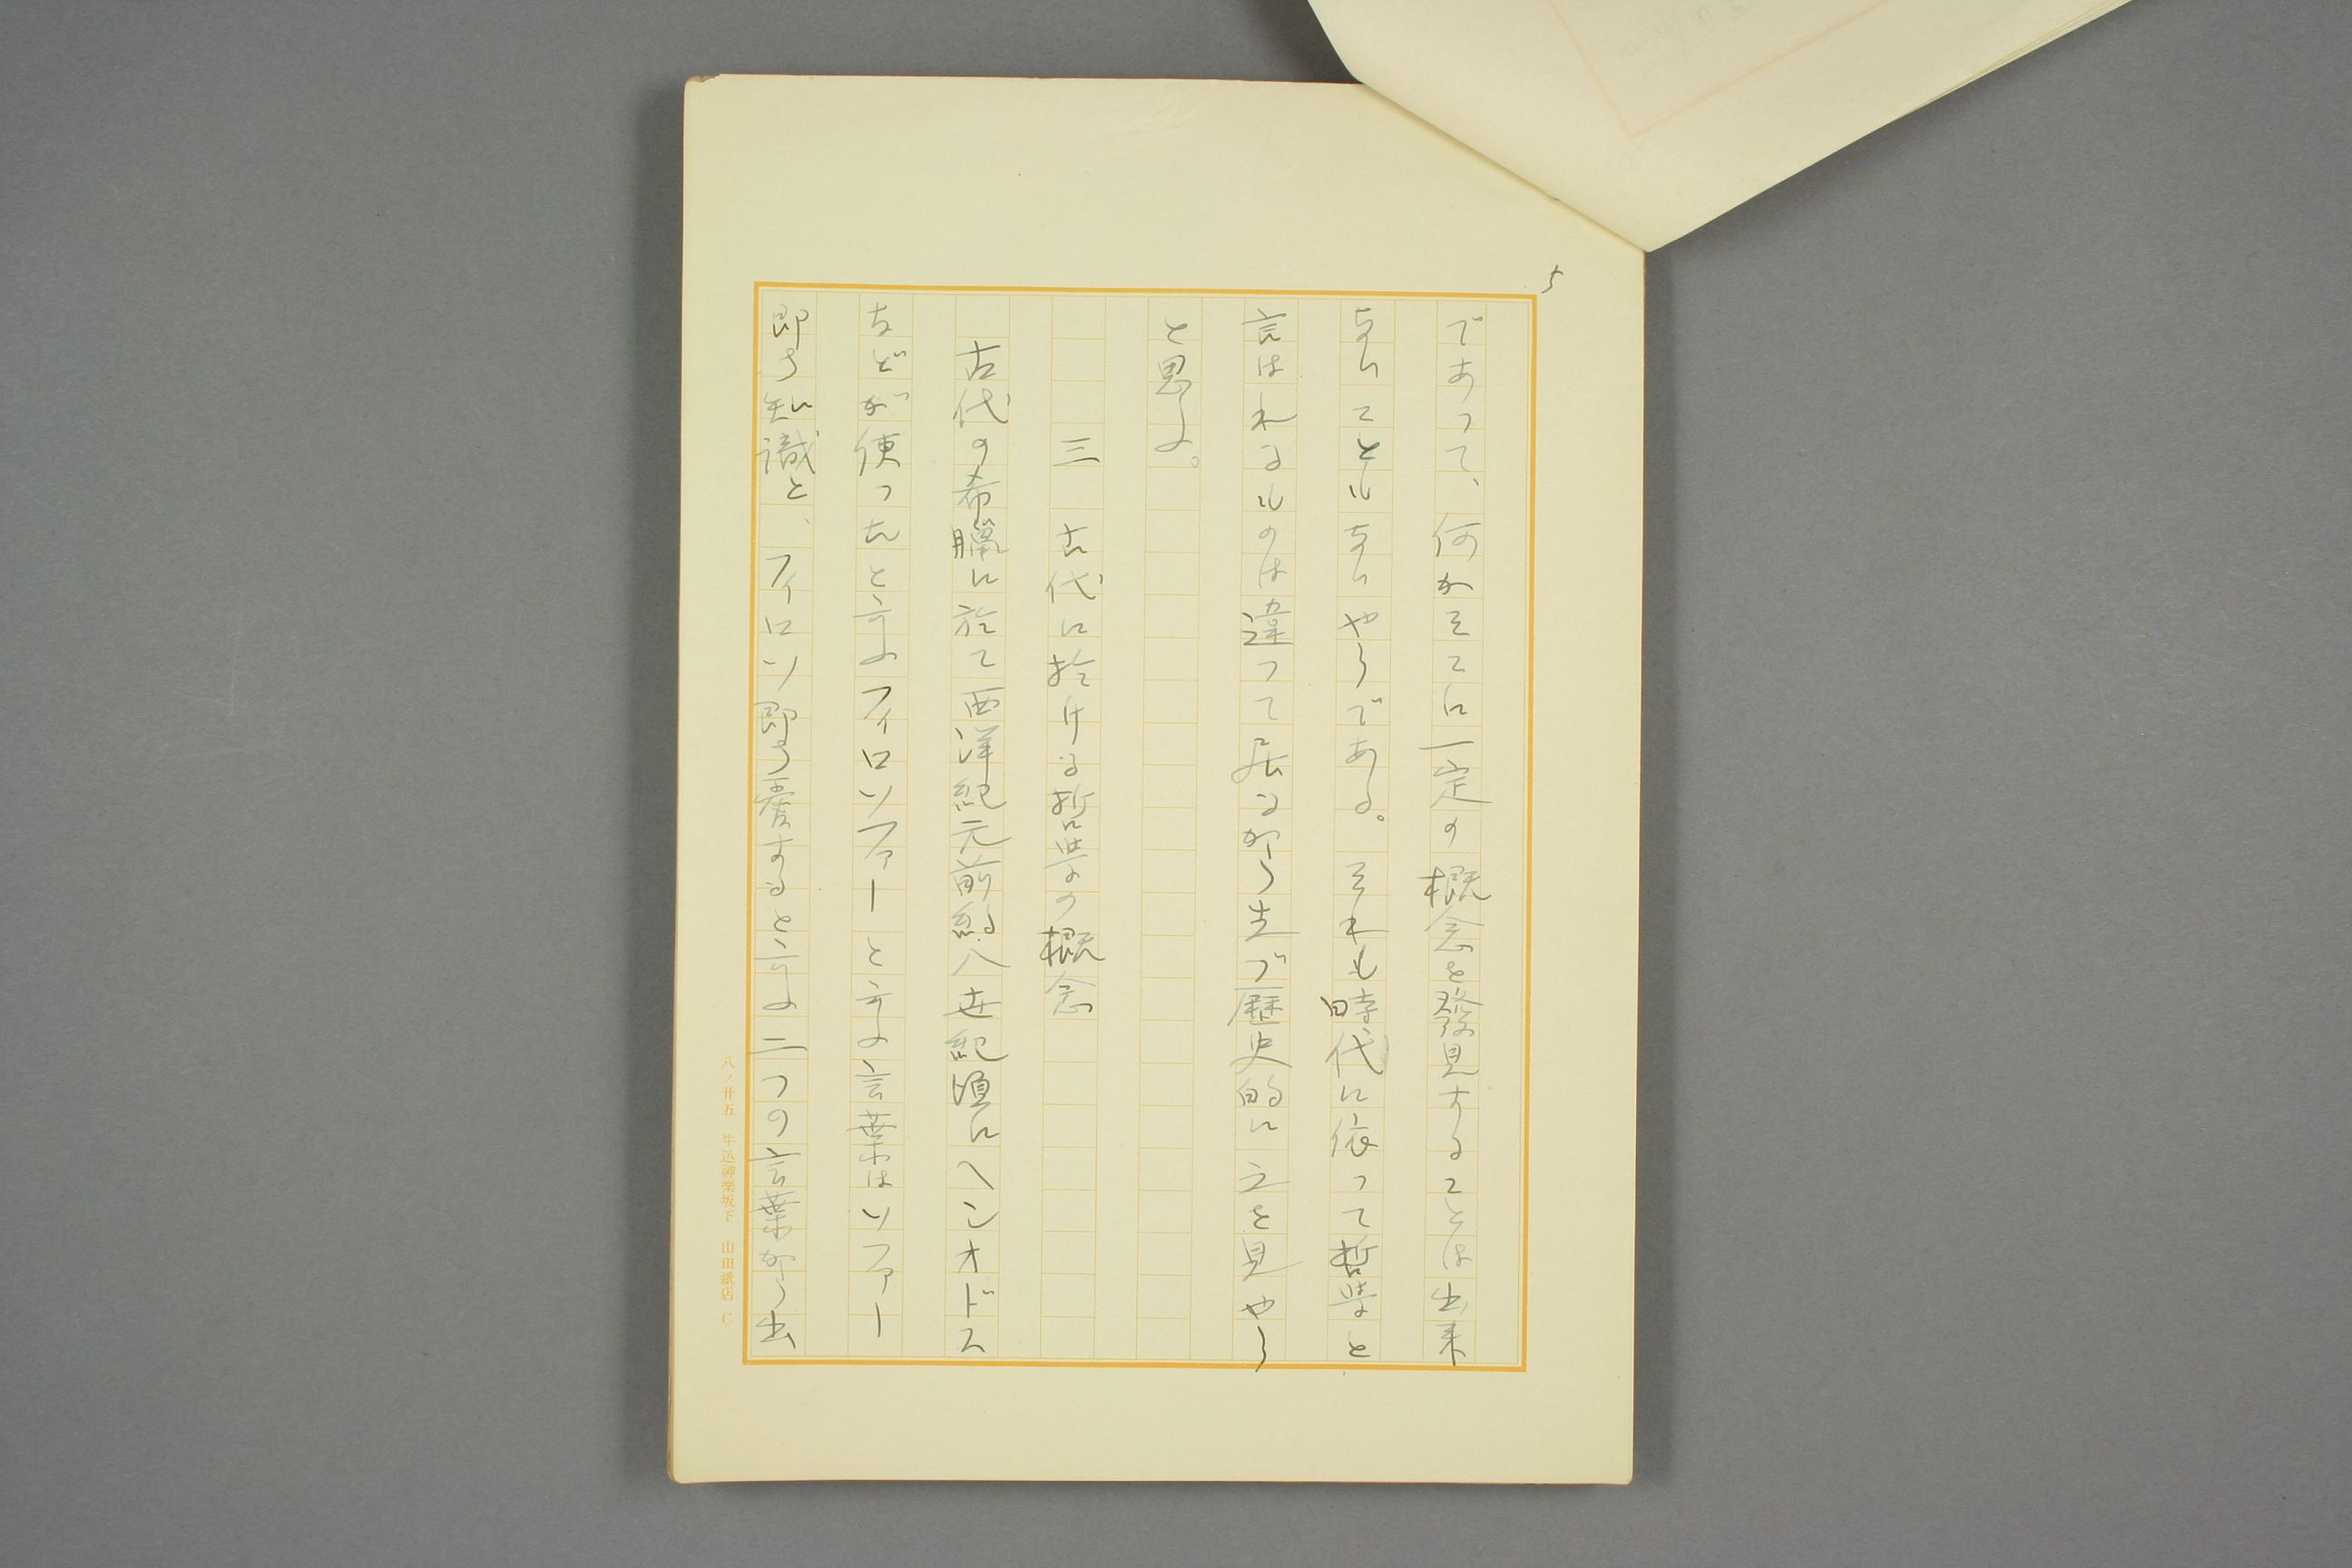 5
であって、何かそこに一定の概念を發見することは出来
ないこともないやうである。それも時代に依って哲学と
言はれるものは違って居るから先づ歴史的に之を見やう
と思ふ。
三 古代に於ける哲学の概念
古代の希臘に於て西洋紀元前約八世紀頃にヘシオドス
などが使ったと言ふフィロソファーと言ふ言葉はソファー
即ち知識と、フィロソ即ち愛すると言ふ二つの言葉から出
八ノ廿五 牛込神樂坂下 山田紙店 C